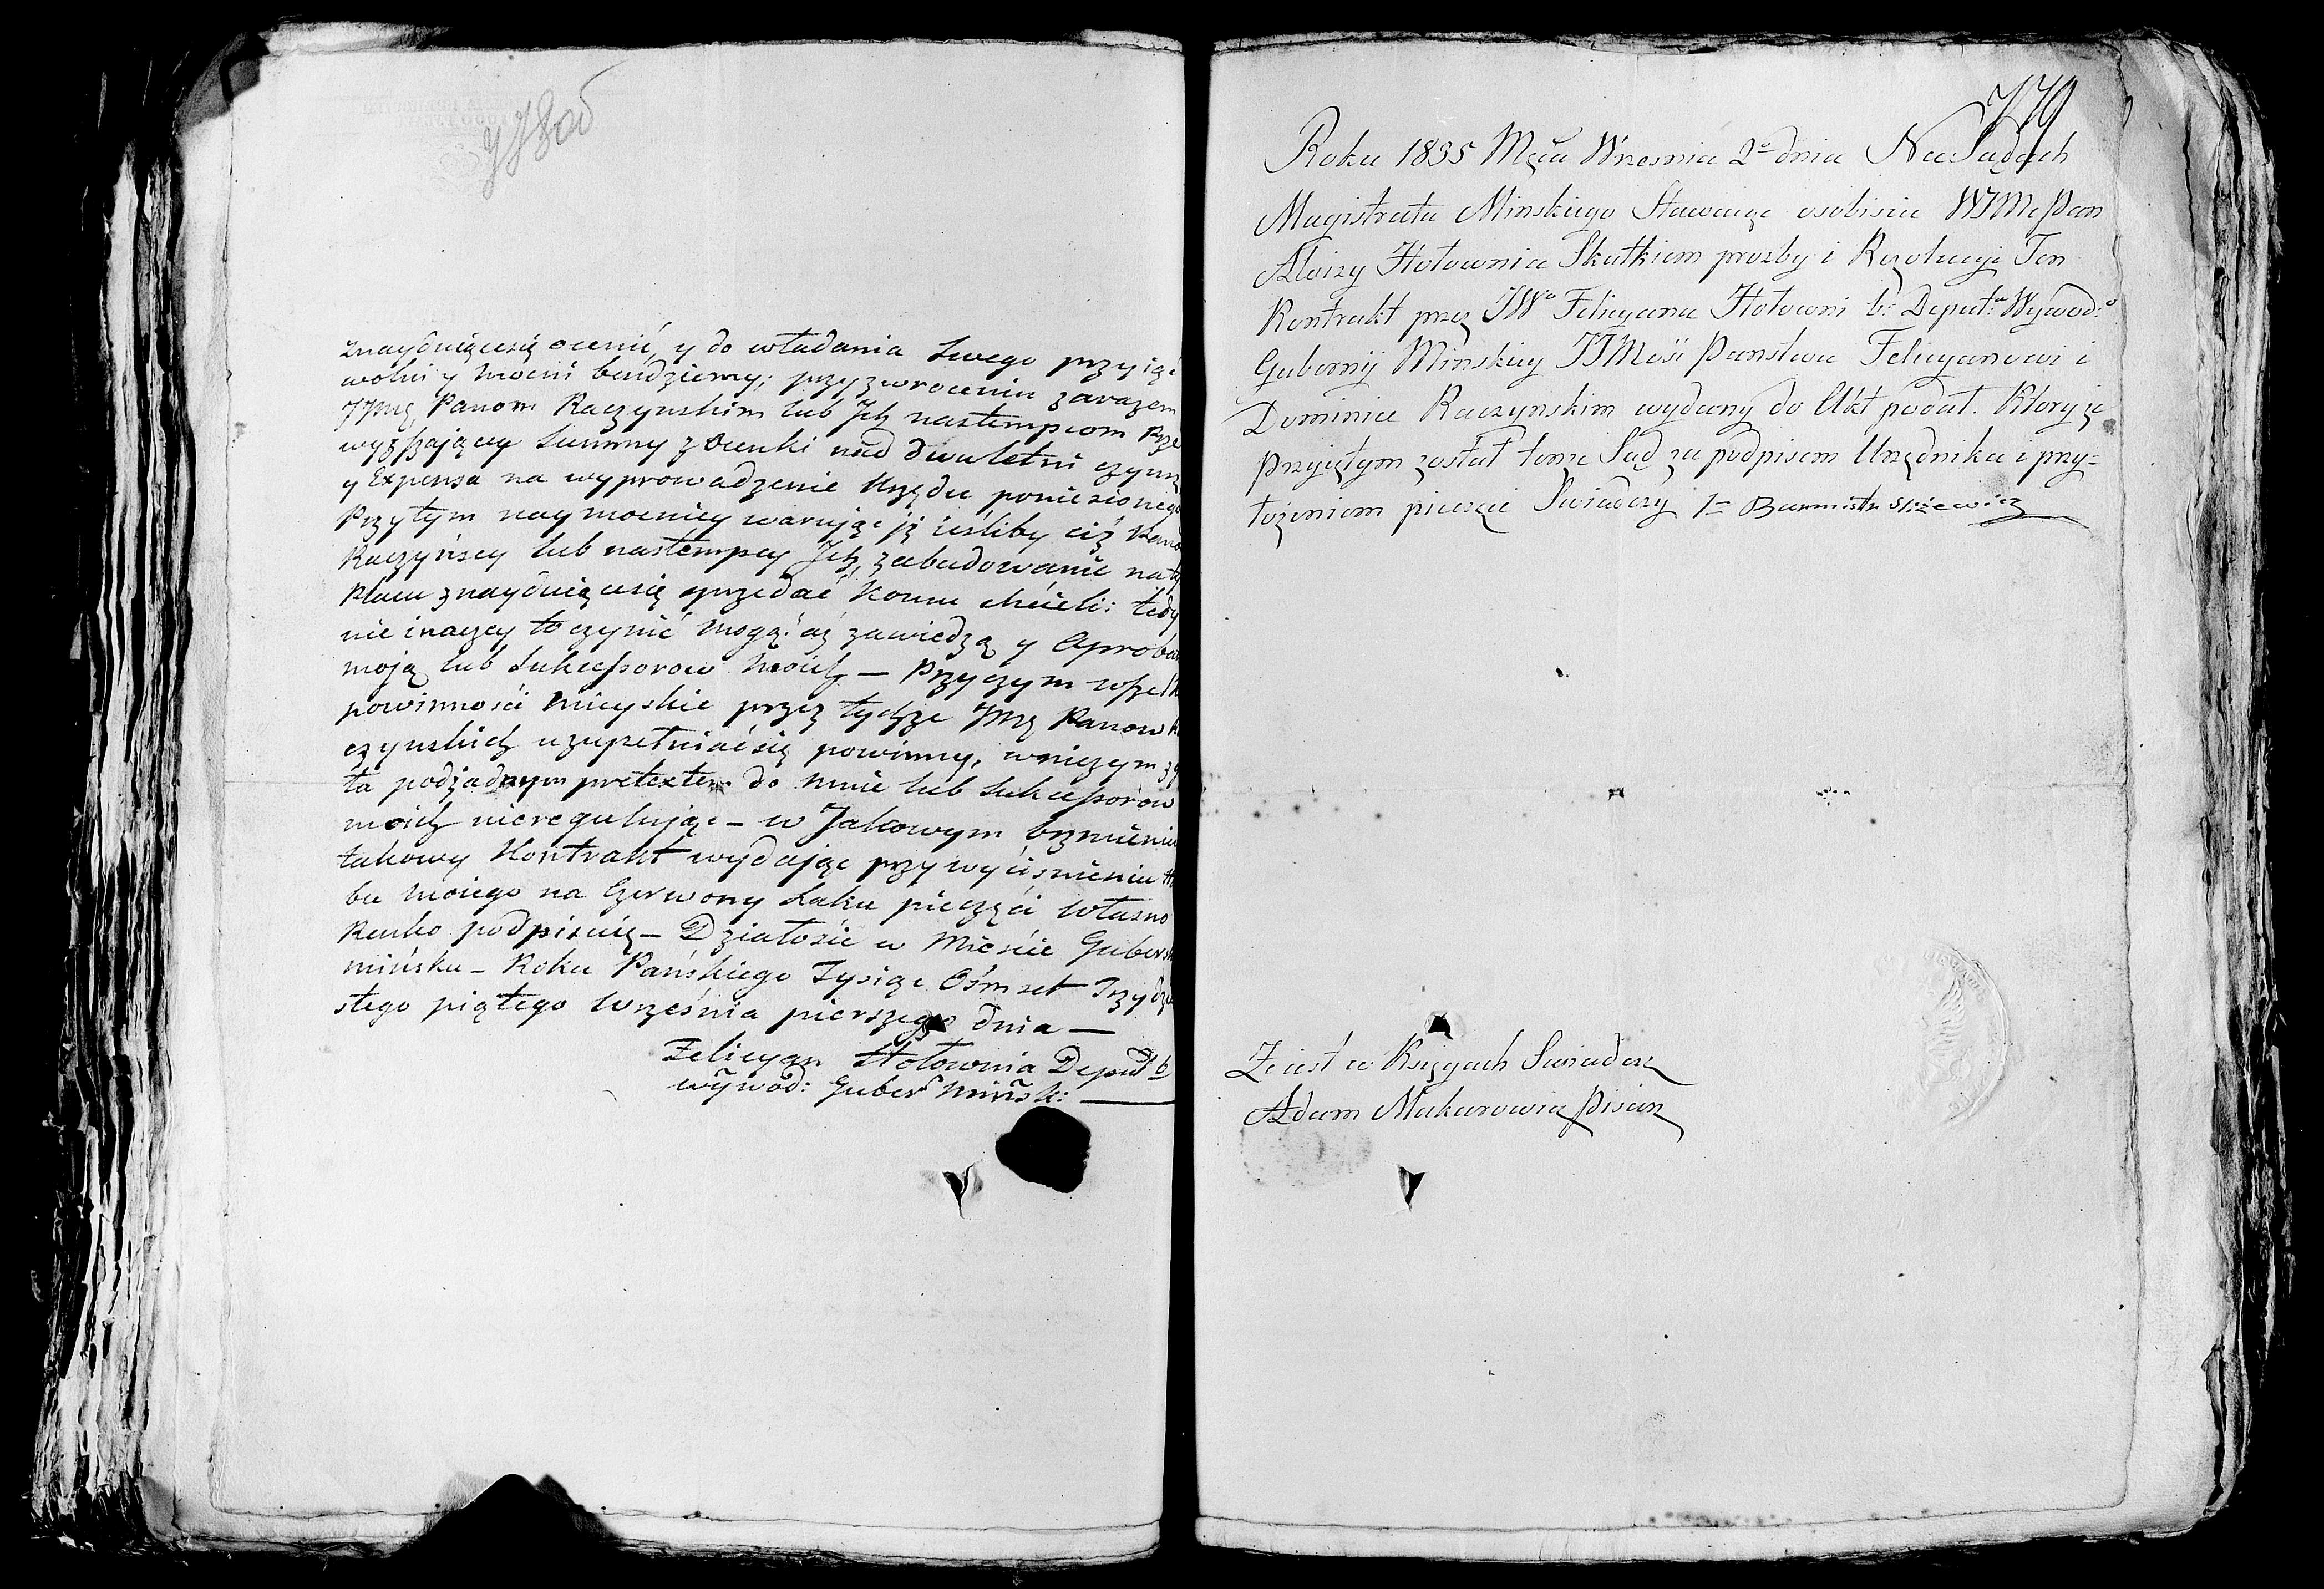 778об
znayduiącesię ocenić y do władania Swego przyiąć
wolni y mocni bendziemy; przyzwroceniu zarazem
JJmę Panom Raczynskim lub Jch nastempcom Prze
wyzszaiącey Summy z Ocenki nad dwuletni czynsz
y Expensa na wyprowadzenie Urzędu poniesionego
Przytym naymocniey waruiąc ją ieśliby ciż Pano
Raczyńscy lub nastempcy Jch, zabudowanie naty
Placu znayduiącesię sprzedać komu chcieli: tedy
nie inaczey to czynić mogą: aż zawiedzą y Aprobat
moją lub Sukcessorow moich — Przyczym wszelk
powinnosci mieyskie przez tychże Jmę Panow R
czynskich uzupełniaćsię powinny, wniczym zg
ła podżadnym pretextem do mnie lub Sukcessorow
moich nieregulując — w Jakowym brzmieniu
takowy Kontrakt wydając przy wyciśnieniu H
bu moiego na Czerwony Laku pieczęci własno
Renko podpisuię — Działosie w Mieście Gubersk
mińsku — Roku Pańskiego Tysiąc Ośmset Trzydzie
stego piątego Września pierszego dnia —
Felicyan Hołownia Deput b
wywod: Guber Mińsk: —
779
Roku 1835 Męca Wrzesnia 2º dnia Na Sądach
Magistratu Minskiego Stawaiąc osobiscie WJMc Pan
Aloizy Hołownia Skutkiem prozby i Rezolucyi Ten
Kontrakt przez JWº Felicyana Hołowni b: Deputª Wywodº
Gubernij Minskiey JJMość Panstwu Felicyanowi i
Dominice Raczynskim wydany do Akt podał. Który że
Przyiętym został tenże Sąd za podpisem Urzędnika i przy=
łożeniem pieczęci Swiadczy 1= Burmistr
Że iest w Księgach Swiadcze
Adam Makarowicz Pisarz